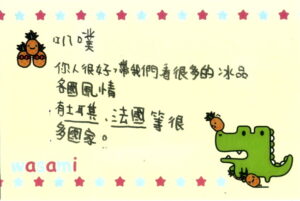 你人很好,帶我們看很多的冰品
各國風情
有土耳其、法國等很
多國家。
wasami